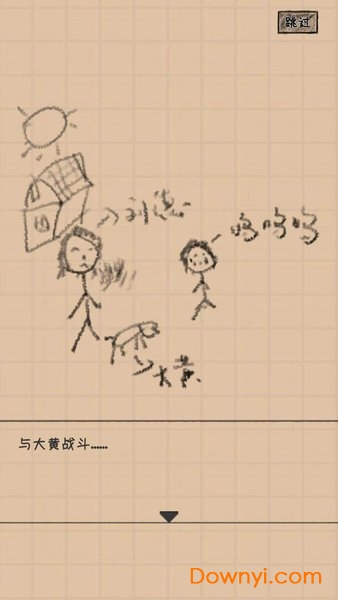 跳过
刘德
呜呜呜
大黄
与大黄战斗......
Downyi.com